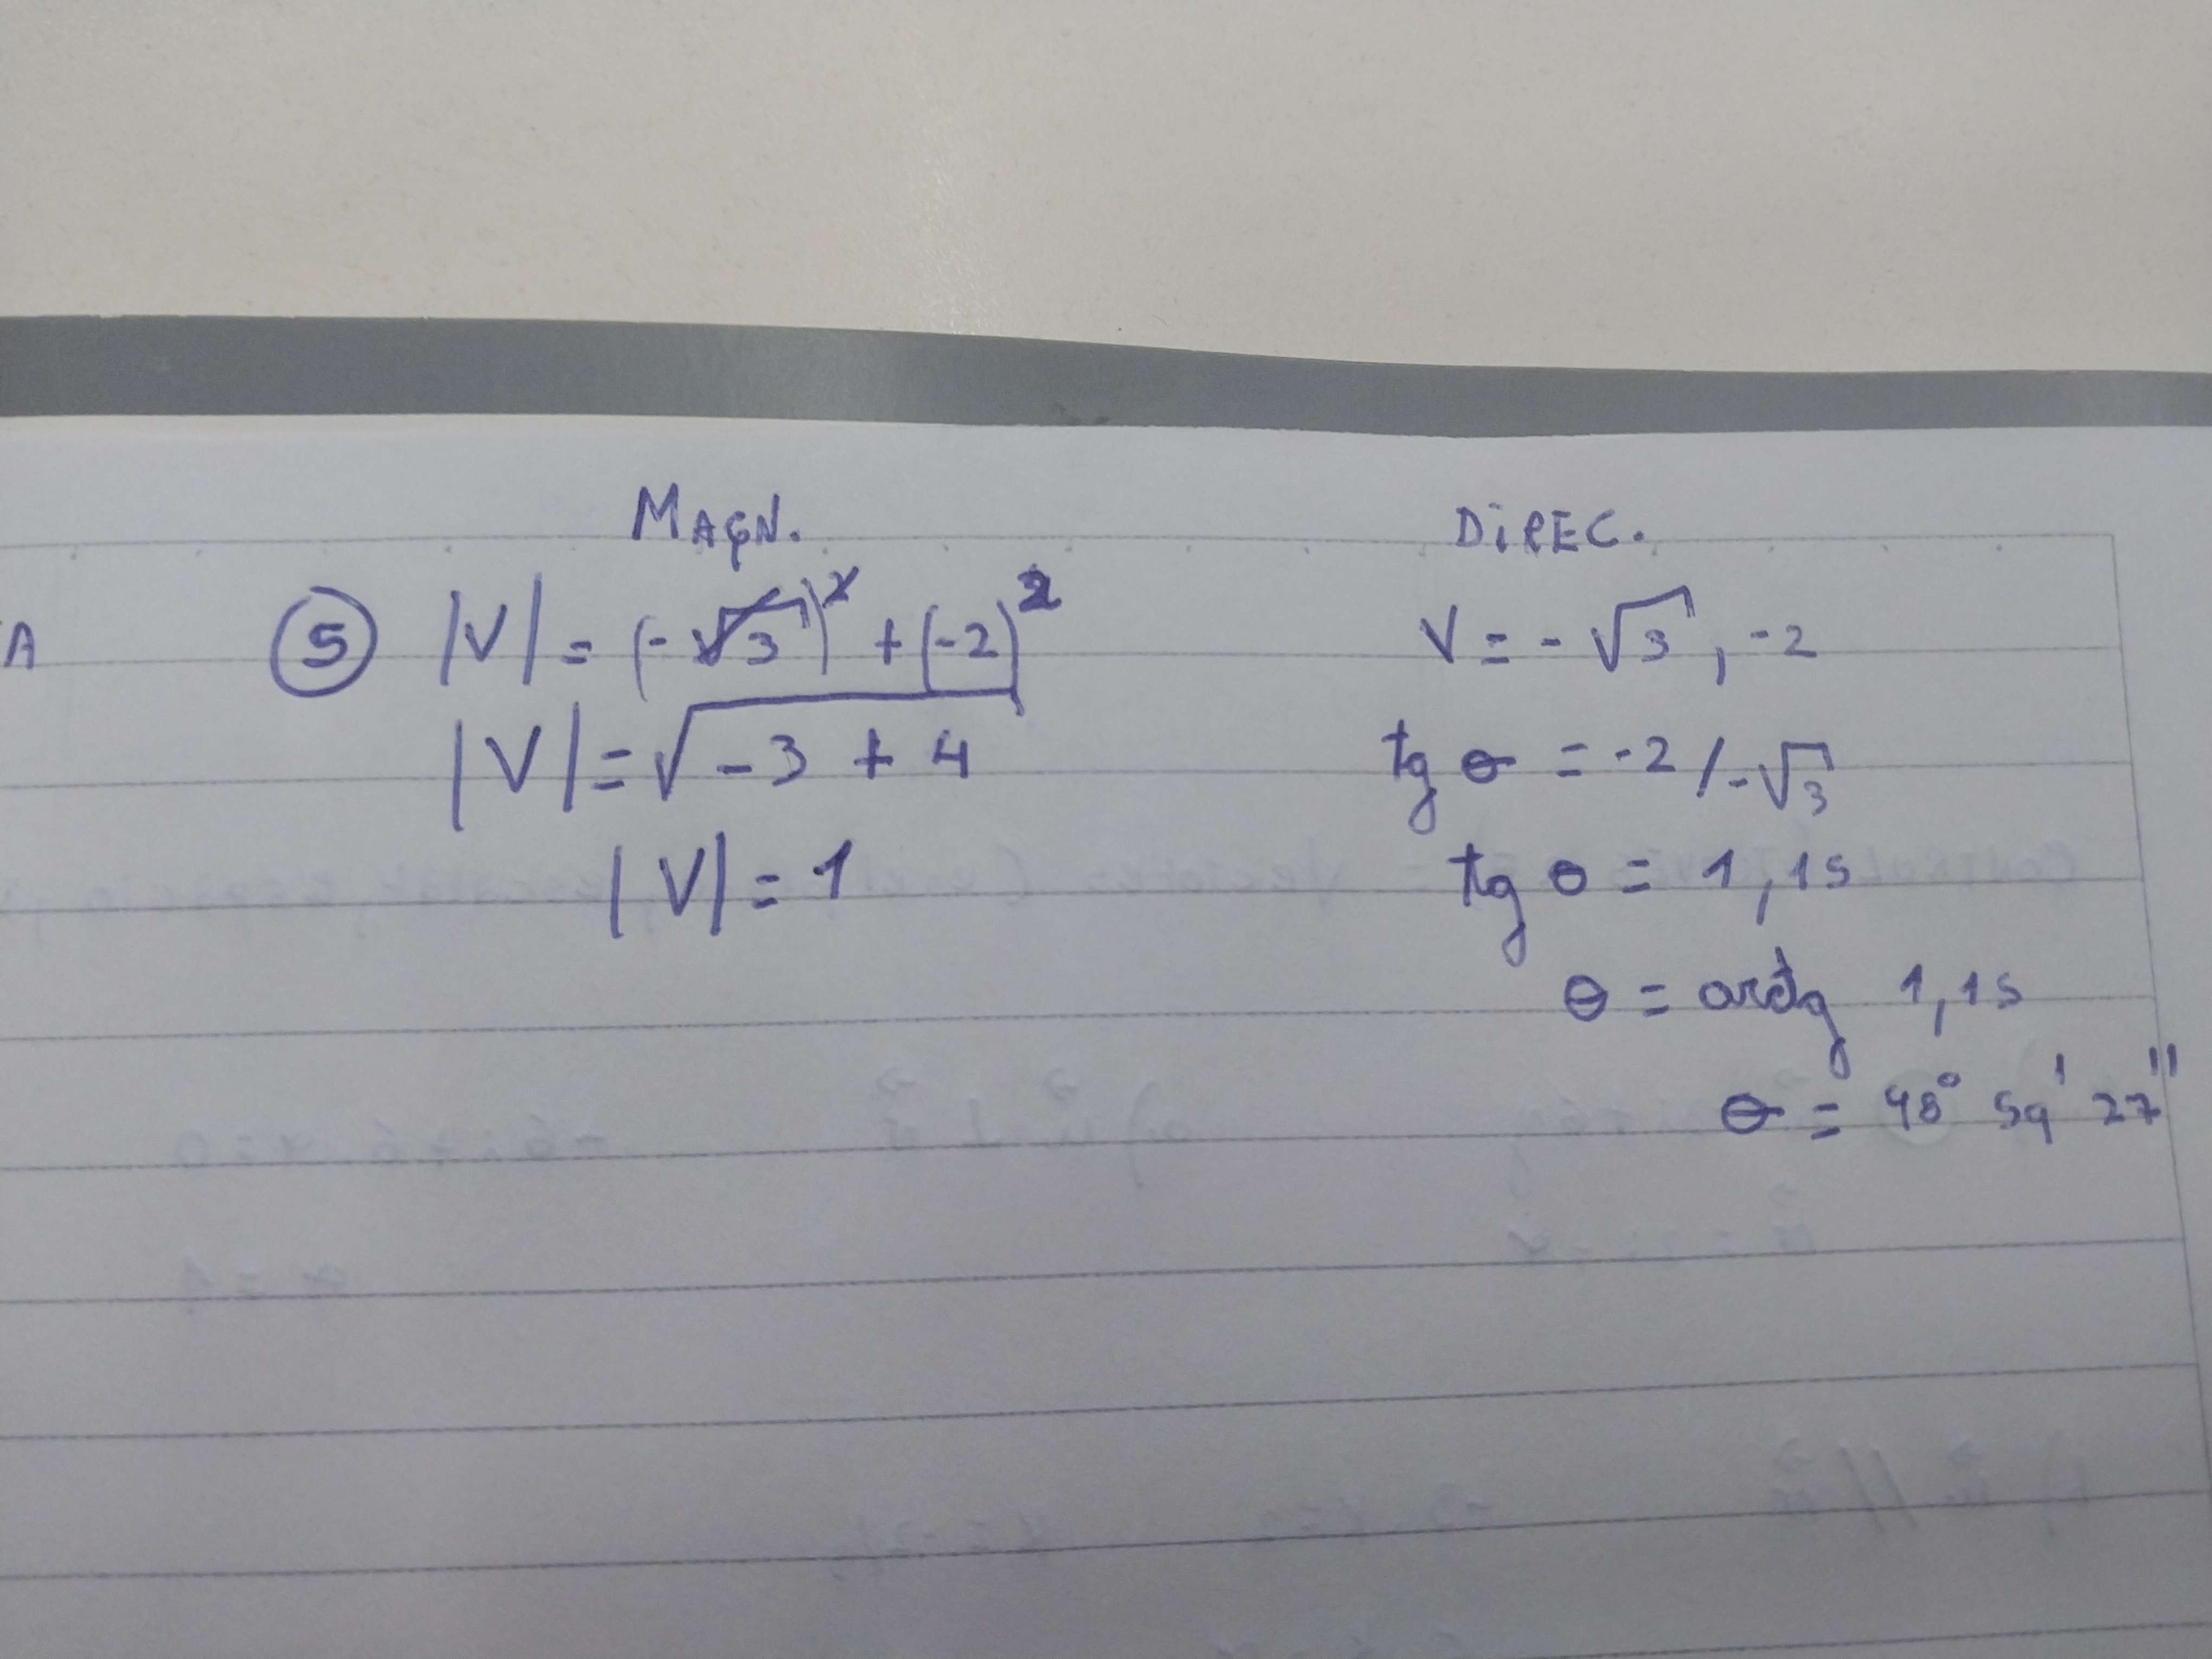 A
MAGN.
⑤ |V| = (-√3)² + (-2)²
|V| = √-3 + 4
|V| = 1
DIREC.
V = -√3, -2
tg θ = -2/-√3
tg θ = 1,15
θ = arctg 1,15
θ = 48° 59' 27"